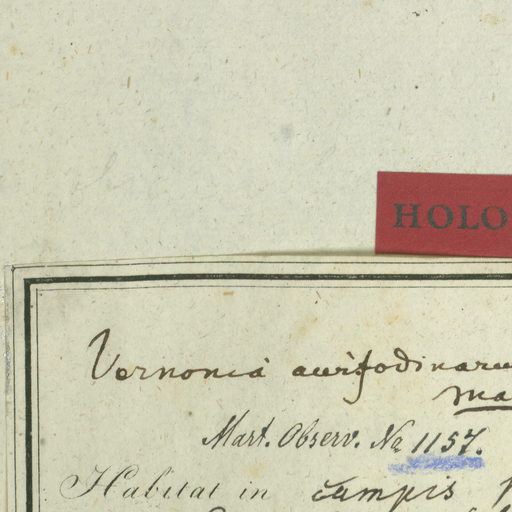 HOLO
Vernonia aurifodinaru
Ma
Mart. Observ. No 1157.
Habitat in campis